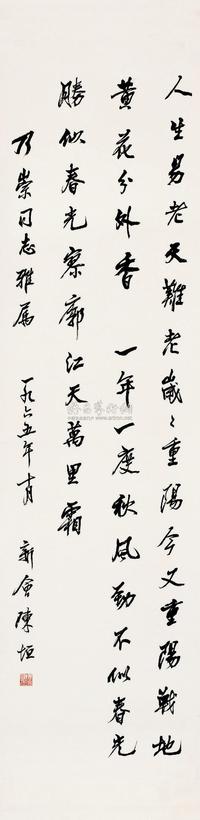 人生易老天難老歲〻重陽今又重陽戰地
黄花分外香　一年一度秋風勁不似春光
勝似春光寥廓江天萬里霜
乃崇同志雅屬　一九六五年十月　新會陳垣